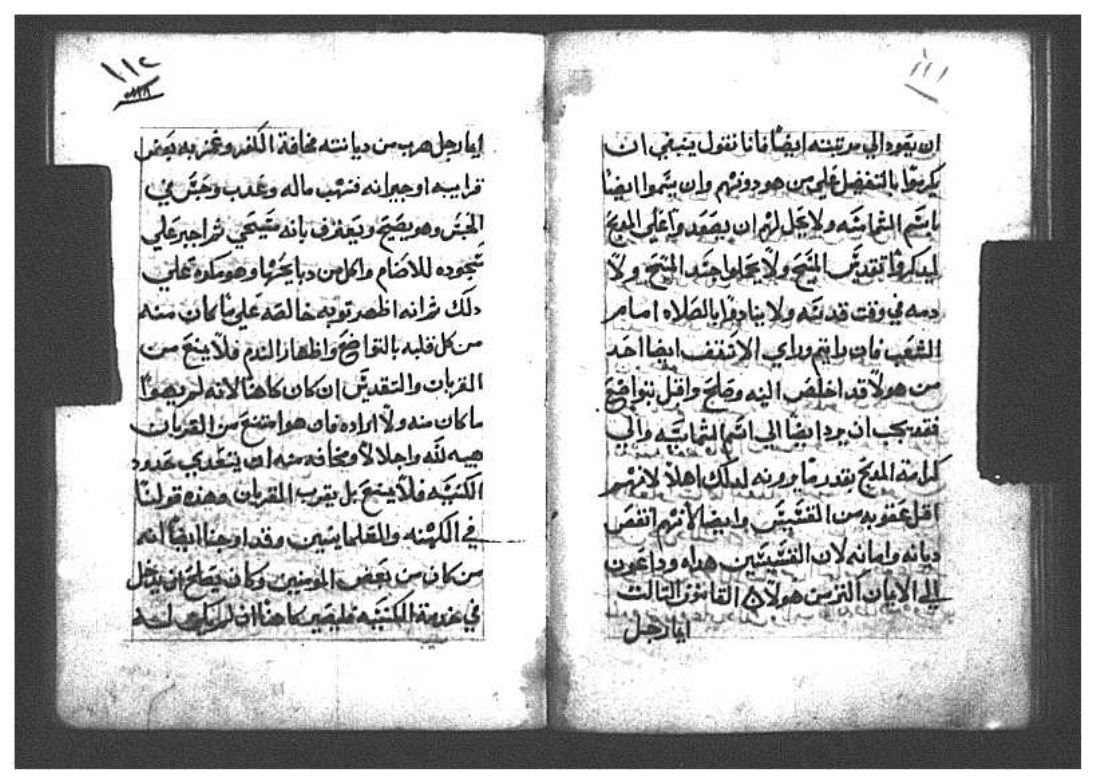 ١١١
ان يعود الي مرتبته ايضا فانا نقول ينبغي ان
يكرموا بالتفضل علي من هو دونهم وان يسموا ايضا
باسم الشماسه ولا يحل لهم ان يصعدوا علي المدبح
ليدكروا تقديس المسيح ولا يحملوا جسد المسيح ولا
دمه في وقت قدسه ولا ينادوا بالصلاه امام
الشعب فان رايتم وراي الاسقف ايضا احد
من هولا قد اخلص النيه وصلح واقبل بتواضع
فقد يجب ان يرد ايضا الي اسم الشماسيه والي
كرامة المدبح بقدر ما يرونه لدلك اهلا لانهم
اقل عقوبه من القسيسين وايضا لانهم انقص
ديانه وامانه لان القسيسين هداه وداعون
الي الايمان اكثر من هولاء القانون التالت
ايما رجل
١١٢
ايما رجل هرب من ديانته مخافة الكفر وغمز به بعض
قرايبه او جيرانه فنهب ماله وعدب وحبس في
الحبس وهو يصيح ويعترف بانه مسيحي ثم اجبر علي
سجوده للاصنام واكل من دبايحها وهو مكره علي
دلك ثم انه اظهر توبه خالصه علي ما كان منه
من كل قلبه بالتواضع واظهار الندم فلا يمنع من
القربان والتقديس ان كان كاهنا لانه لم يهوا
ما كان منه ولا اراده فان هو امتنع من القربان
هيبه لله واجلالا ومخافه منه ان يتعدي حدود
الكنيسه فلا يمنع بل يقرب القربان وهده قولنا
في الكهنه والعلمانيين وقد اوجنا ايضا انه
من كان من بعض المومنين وكان يصلح ان يدخل
في خدمة الكنيسه فليصير كاهنا ان لم يكن له